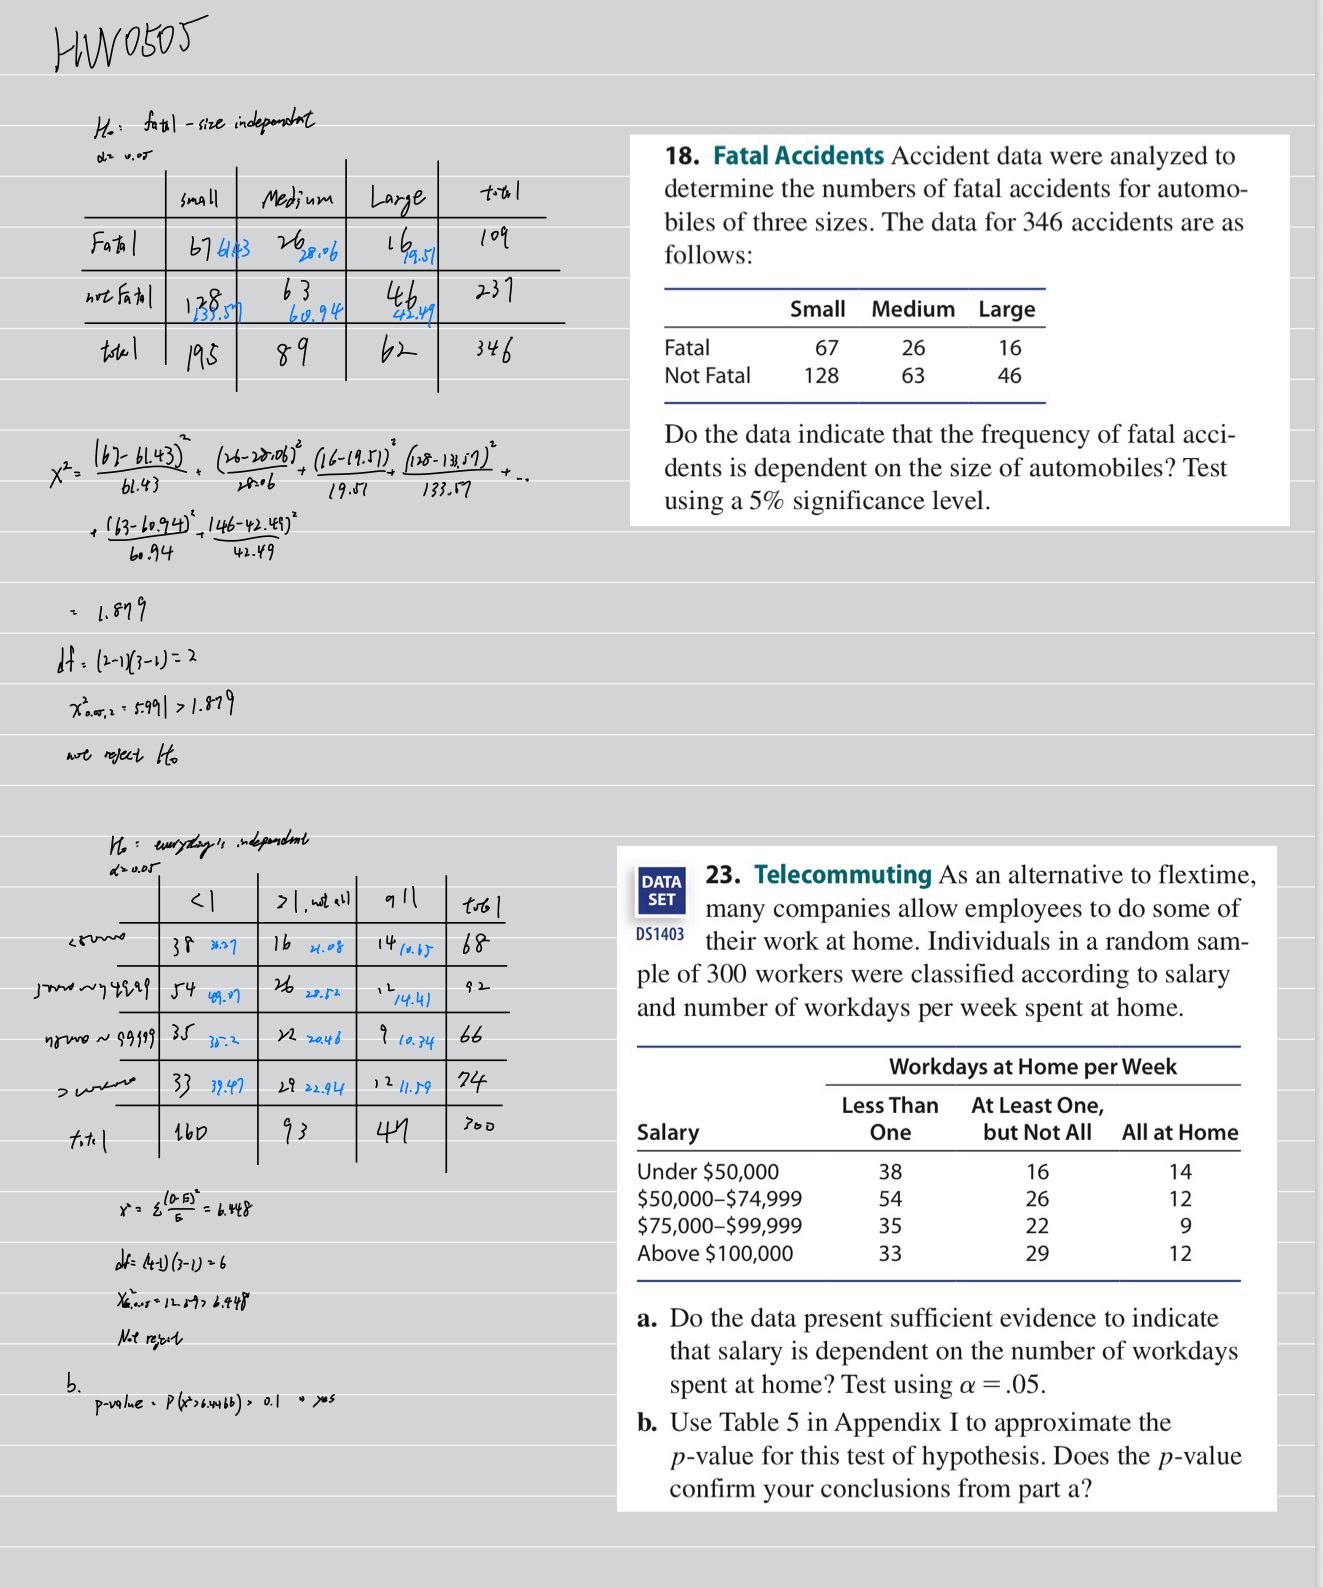 HW0505
H₀: fatal - size independent
α = 0.05
small Medium Large total
Fatal 67 61.43 26 28.06 16 19.51 109
not Fatal 128 133.57 63 60.94 46 42.49 237
total 195 89 62 346
x² = (67-61.43)²/61.43 + (26-28.06)²/28.06 + (16-19.51)²/19.51 + (128-133.57)²/133.57 + ...
+ (63-60.94)²/60.94 + (46-42.49)²/42.49
= 1.879
df = (2-1)(3-1) = 2
x²0.05,2 = 5.991 > 1.879
not reject H₀
18. Fatal Accidents Accident data were analyzed to
determine the numbers of fatal accidents for automo-
biles of three sizes. The data for 346 accidents are as
follows:
Small Medium Large
Fatal 67 26 16
Not Fatal 128 63 46
Do the data indicate that the frequency of fatal acci-
dents is dependent on the size of automobiles? Test
using a 5% significance level.
H₀: everything is independent
α = 0.05
<1 >1, not all all total
<50000 38 36.27 16 21.08 14 10.65 68
50000~74999 54 49.07 26 28.52 12 14.41 92
75000~99999 35 35.2 22 20.46 9 10.34 66
33 39.47 29 22.94 12 11.59 74
total 160 93 47 300
x² = Σ (O-E)²/E = 6.448
df = (4-1)(3-1) = 6
x²6,0.05 = 12.59 > 6.448
Not reject
b.
p-value = P(x²>6.4466) > 0.1 yes
DATA
SET
DS1403
23. Telecommuting As an alternative to flextime,
many companies allow employees to do some of
their work at home. Individuals in a random sam-
ple of 300 workers were classified according to salary
and number of workdays per week spent at home.
Workdays at Home per Week
Less Than At Least One,
Salary One but Not All All at Home
Under $50,000 38 16 14
$50,000–$74,999 54 26 12
$75,000–$99,999 35 22 9
Above $100,000 33 29 12
a. Do the data present sufficient evidence to indicate
that salary is dependent on the number of workdays
spent at home? Test using α = .05.
b. Use Table 5 in Appendix I to approximate the
p-value for this test of hypothesis. Does the p-value
confirm your conclusions from part a?